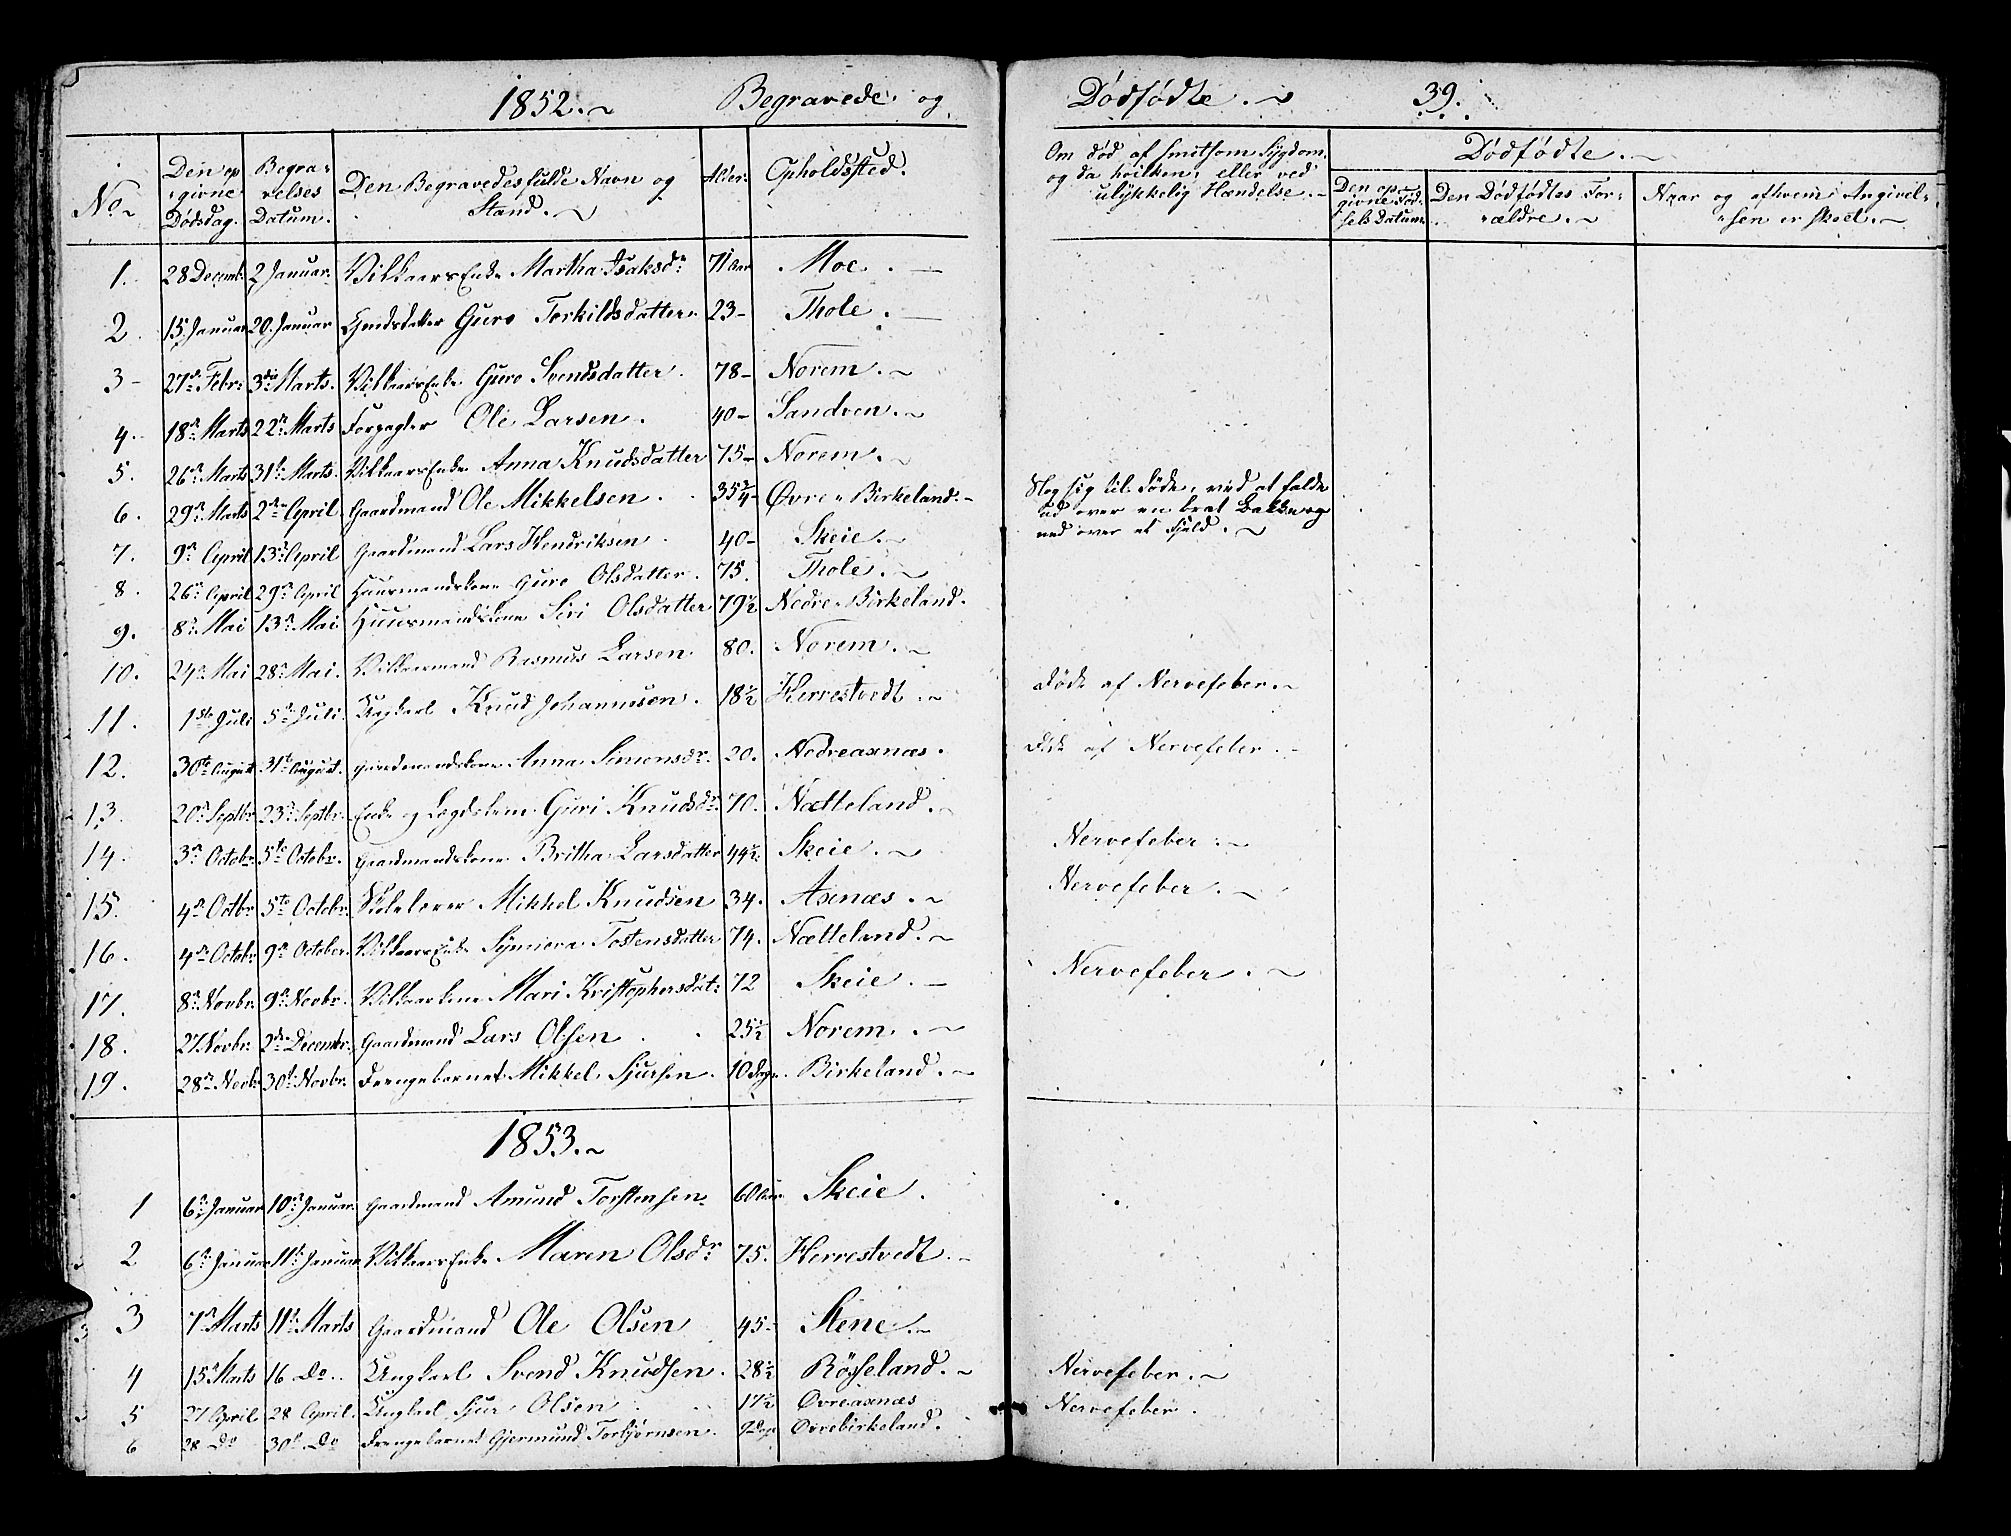 1852. Begravede og Dødfødte. 39.
No Den opgivne Dødsdag. Begravelses Datum. Den Begravedes fulde Navn og Stand. Alder. Opholdssted. Om død af smitsom Sygdom, og da hvilken, eller ved ulykkelig Hændelse.
Dødfødte.
Den opgivne Fødsels Datum. Den Dødfødtes Forældre. Naar og af hvem Angivelsen er skeet.
1. 28 Decemb: 2 Januar. VilkaarsEnke Martha Isaksdr 71 Aar Moe.
2. 15. Januar 20. Januar Guro Torkildsdatter. 23 Thole.
3 27de Febr: 3die Marts. VilkaarsEnke Guro Svendsdatter. 78 Norem.
4. 18de Marts 22de Marts Forpagter Ole Larsen. 40 Sandven.
5. 26de Marts 31te Marts. VilkaarsEnke Anna Knudsdatter 75 Norem.
6. 29de Marts 2den April Gaardmand Ole Mikkelsen. 35 3/4 Øvre Birkeland. Slog sig til døde, ved at falde
ud over en brat Bakke og
ned over et Fjeld.
7. 9de April 13de April Gaardmand Lars Hendriksen 40 Skeie.
8. 26de April 29de April Huusmandskone Guro Olsdatter. 75. Thole.
9. 8de Mai 13de Mai Huusmandskone Siri Olsdatter 79 1/2 Nedre Birkeland.
10. 24de Mai 28de Mai. Vilkaarmand Rasmus Larsen 80. Norem.
11. 1ste Juli 5te Juli. Ungkarl Knud Johannesen. 18 1/2 Herrestvedt. Døde af Nervefeber.
12. 30te August 31te August. Gaardmandskone Anna Simonsdr. 20. Nedreaxnæs. Døde af Nervefeber.
13. 20de Septbr. 23de Septbr. Enke og Lægdslem Guri Knudsdr. 70. Nætteland.
14. 3de Octobr. 5te Octobr. Gaardmandskone Britha Larsdatter 44 1/2 Skeie. Nervefeber.
15. 4de Octbr. 5te Octobr. Mikkel Knudsen 34. Axnæs. Nervefeber.
16. 4de Octobr. 9de October. VilkaarsEnke Synneva Tostensdatter 74. Nætteland.
17. 8de Novbr. 9de Novbr. Vilkaarkone Mari Kristophersdat: 72 Skeie. Nervefeber.
18. 27 Novbr. 2den Decembr. Gaardmand Lars Olsen 25 1/2 Norem.
19. 28de Novbr. 30te Novbr. Drengebarnet Mikkel Sjursen. 10 Dage. Birkeland.
1853.
1 6te Januar 10de Januar. Gaardmand Amund Torstensen. 60 Aar Skeie.
2 6te Januar 11te Januar VilkaarsEnke Maren Olsdr 75. Herrestvedt.
3 7de Marts 11te Marts Gaardmand Ole Olsen 45. Stene.
4 15de Marts 16 Do. Ungkarl Svend Knudsen. 28 1/2 Røsseland. Nervefeber.
5 27 April 28 April. Ungkarl Sjur Olsen 17 1/2 Øvreaxnæs Nervefeber.
6 28 Do 30te Do Drengebarnet Gjermund Torbjørnsen. 9 Dage Øvrebirkeland.